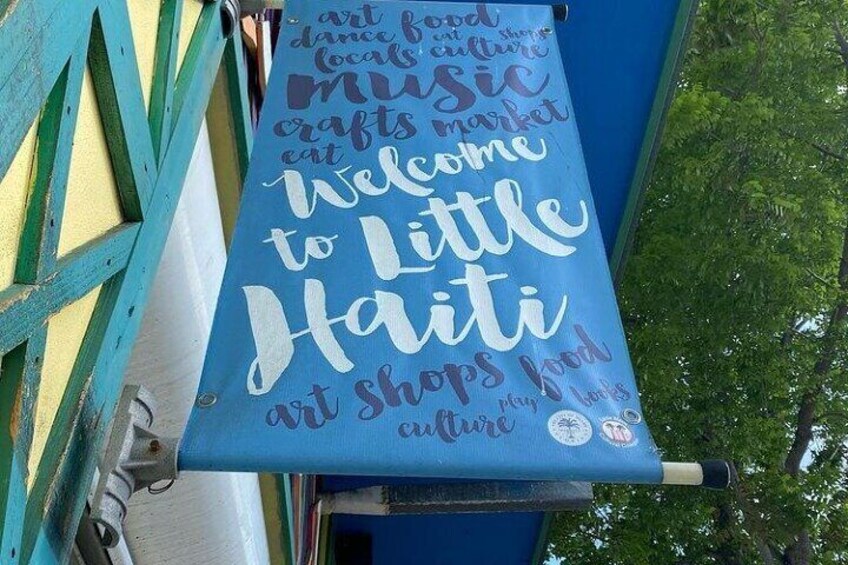 art food
dance eat shops
locals culture
music
crafts market
eat
Welcome
to Little
Haiti
art shops food
culture play books